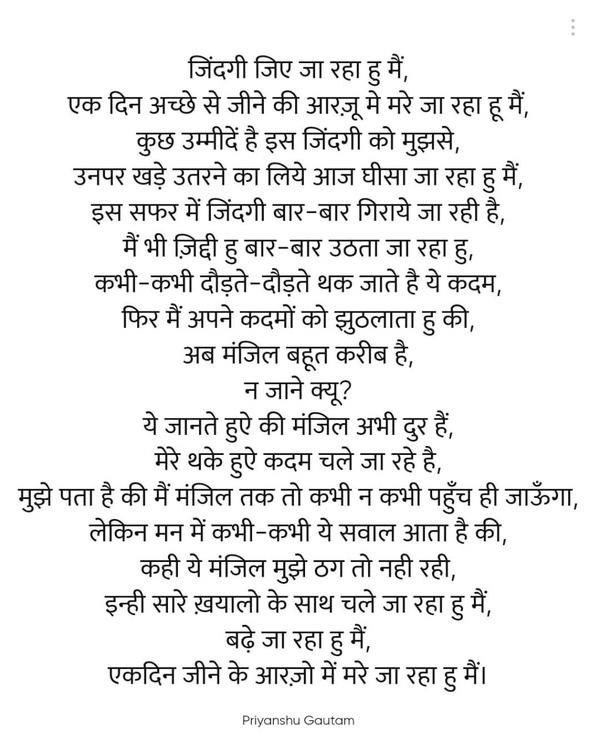 जिंदगी जिए जा रहा हु मैं,
एक दिन अच्छे से जीने की आरज़ू मे मरे जा रहा हू मैं,
कुछ उम्मीदें है इस जिंदगी को मुझसे,
उनपर खड़े उतरने का लिये आज घीसा जा रहा हु मैं,
इस सफर में जिंदगी बार-बार गिराये जा रही है,
मैं भी ज़िद्दी हु बार-बार उठता जा रहा हु,
कभी-कभी दौड़ते-दौड़ते थक जाते है ये कदम,
फिर मैं अपने कदमों को झुठलाता हु की,
अब मंजिल बहूत करीब है,
न जाने क्यू?
ये जानते हुऐ की मंजिल अभी दुर हैं,
मेरे थके हुऐ कदम चले जा रहे है,
मुझे पता है की मैं मंजिल तक तो कभी न कभी पहुँच ही जाऊँगा,
लेकिन मन में कभी-कभी ये सवाल आता है की,
कही ये मंजिल मुझे ठग तो नही रही,
इन्ही सारे ख़यालो के साथ चले जा रहा हु मैं,
बढ़े जा रहा हु मैं,
एकदिन जीने के आरज़ो में मरे जा रहा हु मैं।
Priyanshu Gautam